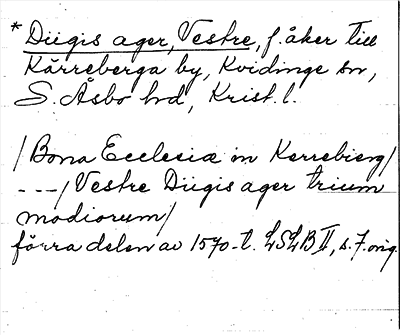 * Diigis ager, Vestre, f. åker till
Kärreberga by, Kvidinge sn,
S. Åsbo hd, Krist. l.
/Bona Ecclesiæ in Kerrebierg/
---/Vestre Diigis ager trium
modiorum/
förra delen av 1570-t. LSLB II, s. 7. orig.